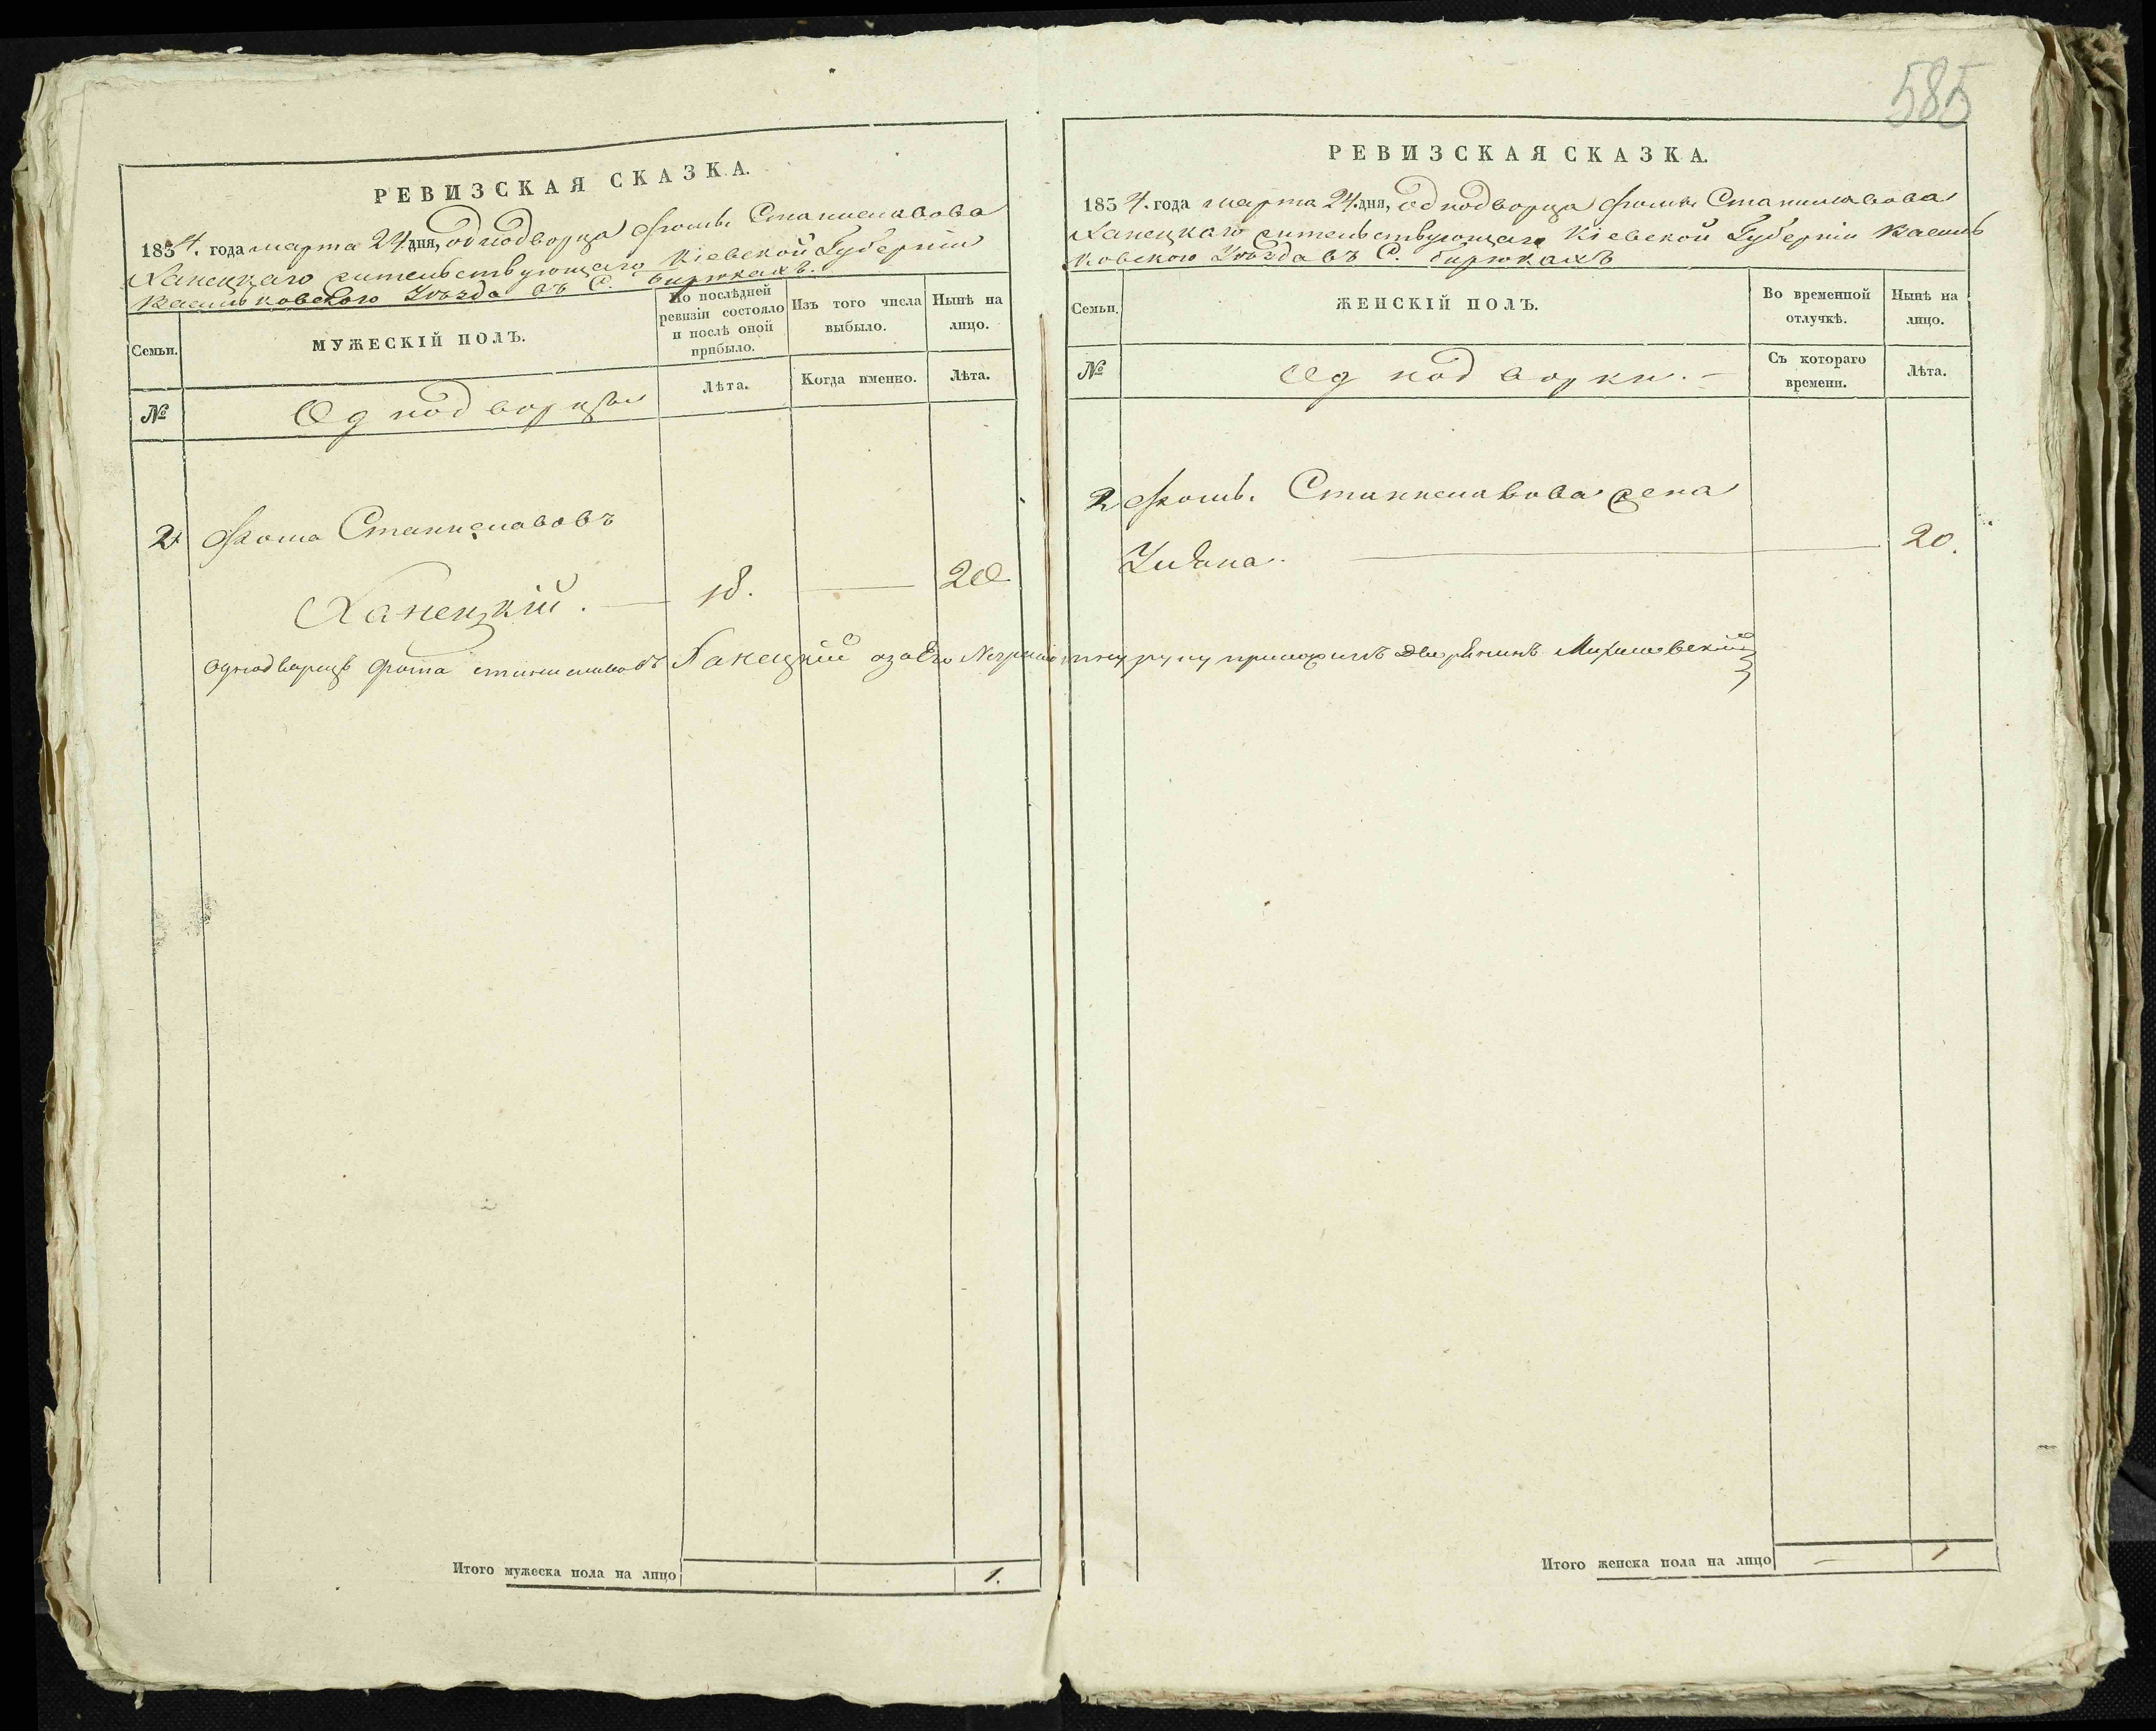 585
РЕВИЗСКАЯ СКАЗКА.
1834. года марта 24. дня, однодворца Фомы Станиславова
Ханецкаго жительствующаго Кіевской Губерніи
Васильковского Уѣзда въ С. Бирюкахъ.
Семьи.
МУЖЕСКІЙ ПОЛЪ.
По послѣдней ревизіи состояло и послѣ оной прибыло.
Изъ того числа выбыло.
Нынѣ на лицо.
№
Однодворцы
Лѣта.
Когда именно.
Лѣта.
2 Фома Станиславовъ
Ханецкій. — 18. — 20
однодворецъ Фома станиславовъ Ханецкій азаЕго руку приложилъ дворянинъ
Итого мужеска пола на лицо 1.
РЕВИЗСКАЯ СКАЗКА.
1834. года марта 24. дня, однодворца Фомы Станиславова
Ханецкаго жительствующаго Кіевской Губерніи Василь
ковского Уѣзда въ С. бирюкахъ
Семьи.
ЖЕНСКІЙ ПОЛЪ.
Во временной отлучкѣ.
Нынѣ на лицо.
№
Однодворки. —
Съ котораго времени.
Лѣта.
2 Фомы Станиславова жена
Уліана. — 20.
Итого женска пола на лицо — 1